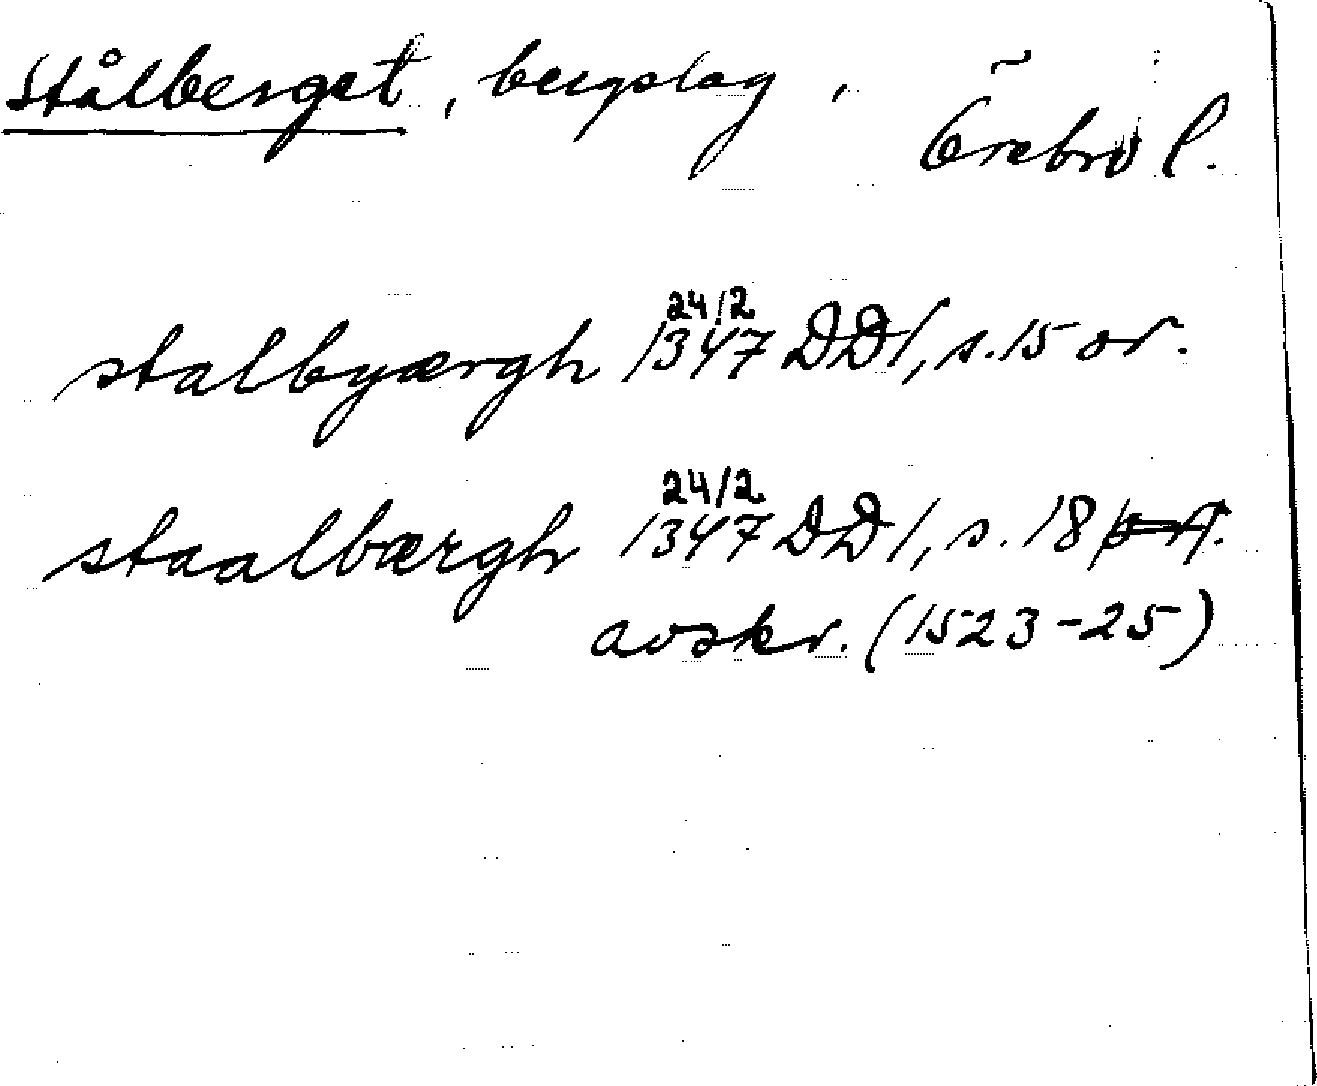 Stålberget, bergslag,
Örebro l.
24/2
stalbyærgh 1347 DD1, s. 15 or.
24/2
staalbærgh 1347 DD1, s. 18
avskr. (1523-25)